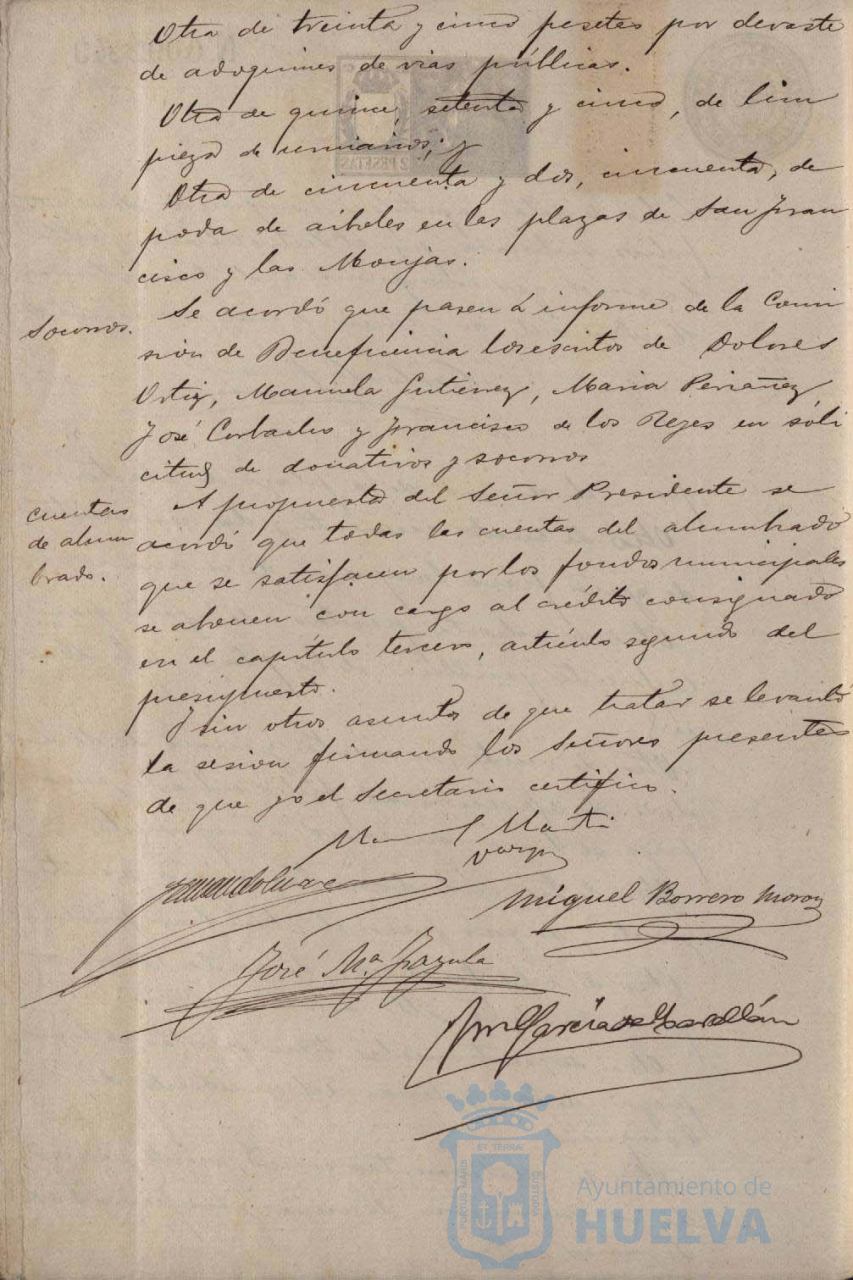 Otra de treinta y cinco pesetas por devaste
de adoquines de vias públicas.
Otra de quince, setenta y cinco, de lim
pieza de urinarios; y
Otra de cincuenta y dos, cincuenta, de
poda de árboles en las plazas de San Fran
cisco y las Monjas.
Socorros.
Se acordó que pasen á informe de la Comi
sión de Beneficencia los escritos de Dolores
Ortiz, Manuela Gutierrez, Maria Periañez,
José Corbacho y Francisco de los Reyes en soli
citud de donativos y socorros
Cuentas
de alum
brado.
A propuesta del Señor Presidente se
acordó que todas las cuentas del alumbrado
que se satisfacen por los fondos municipales
se abonen con cargo al crédito consignado
en el capítulo tercero, artículo segundo del
presupuesto.
Y sin otros asuntos de que tratar se levantó
la sesion firmando los Señores presentes
de que yo el Secretario certifico.
Vargas
Miguel Borrero Moron
José Mª
García de
2 PESETAS
ET TERRAE
PORTUS MARIS
CUSTODIA
Ayuntamiento de
HUELVA